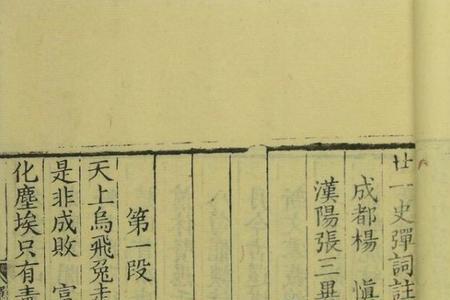 廿一史彈詞註
成都楊 慎
漢陽張三異
第一段
天上烏飛兔走
是非成敗 富
化塵埃只有青